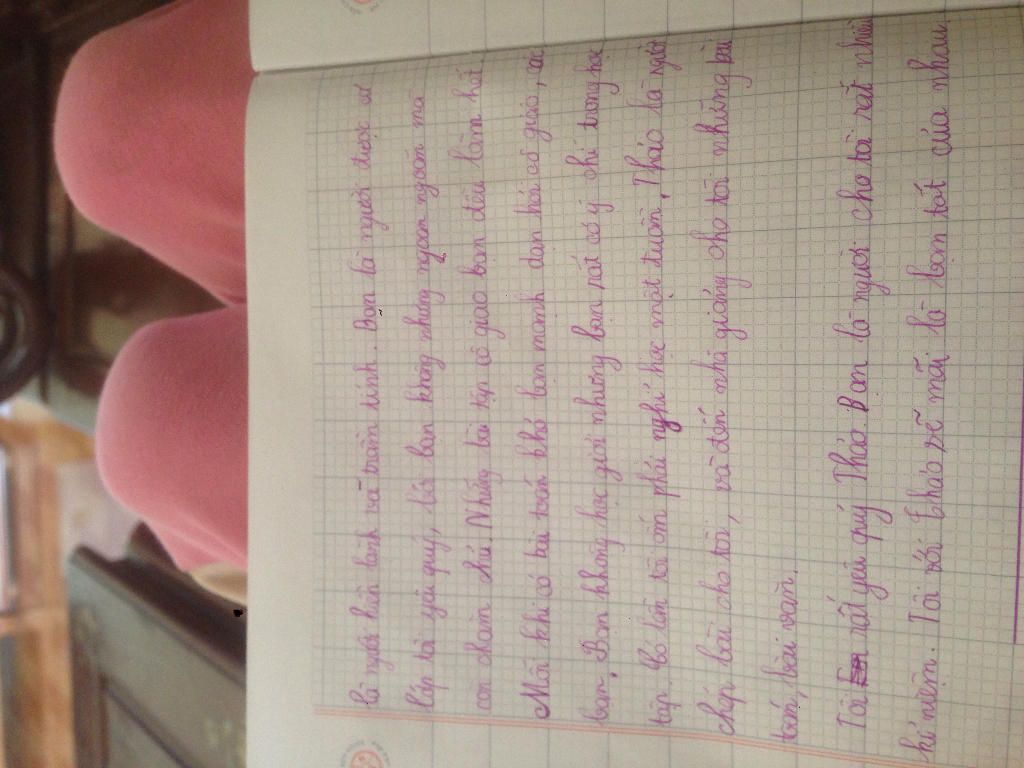 là người hiền lành và trầm tính. Bạn là người được cả
lớp tôi yêu quý, bởi bạn không những ngoan ngoãn mà
còn chăm chỉ. Những bài tập cô giao bạn đều làm hết.
Mỗi khi có bài toán khó bạn mạnh dạn hỏi cô giáo, các
bạn. Bạn không học giỏi nhưng bạn rất có ý chí trong học
tập. Có lần tôi ốm phải nghỉ học một tuần. Thảo là người
chép bài cho tôi, và đến nhà giảng cho tôi những bài
toán, bài văn.
Tôi rất yêu quý Thảo. Bạn là người cho tôi rất nhiều
kỉ niệm. Tôi với Thảo sẽ mãi là bạn tốt của nhau.